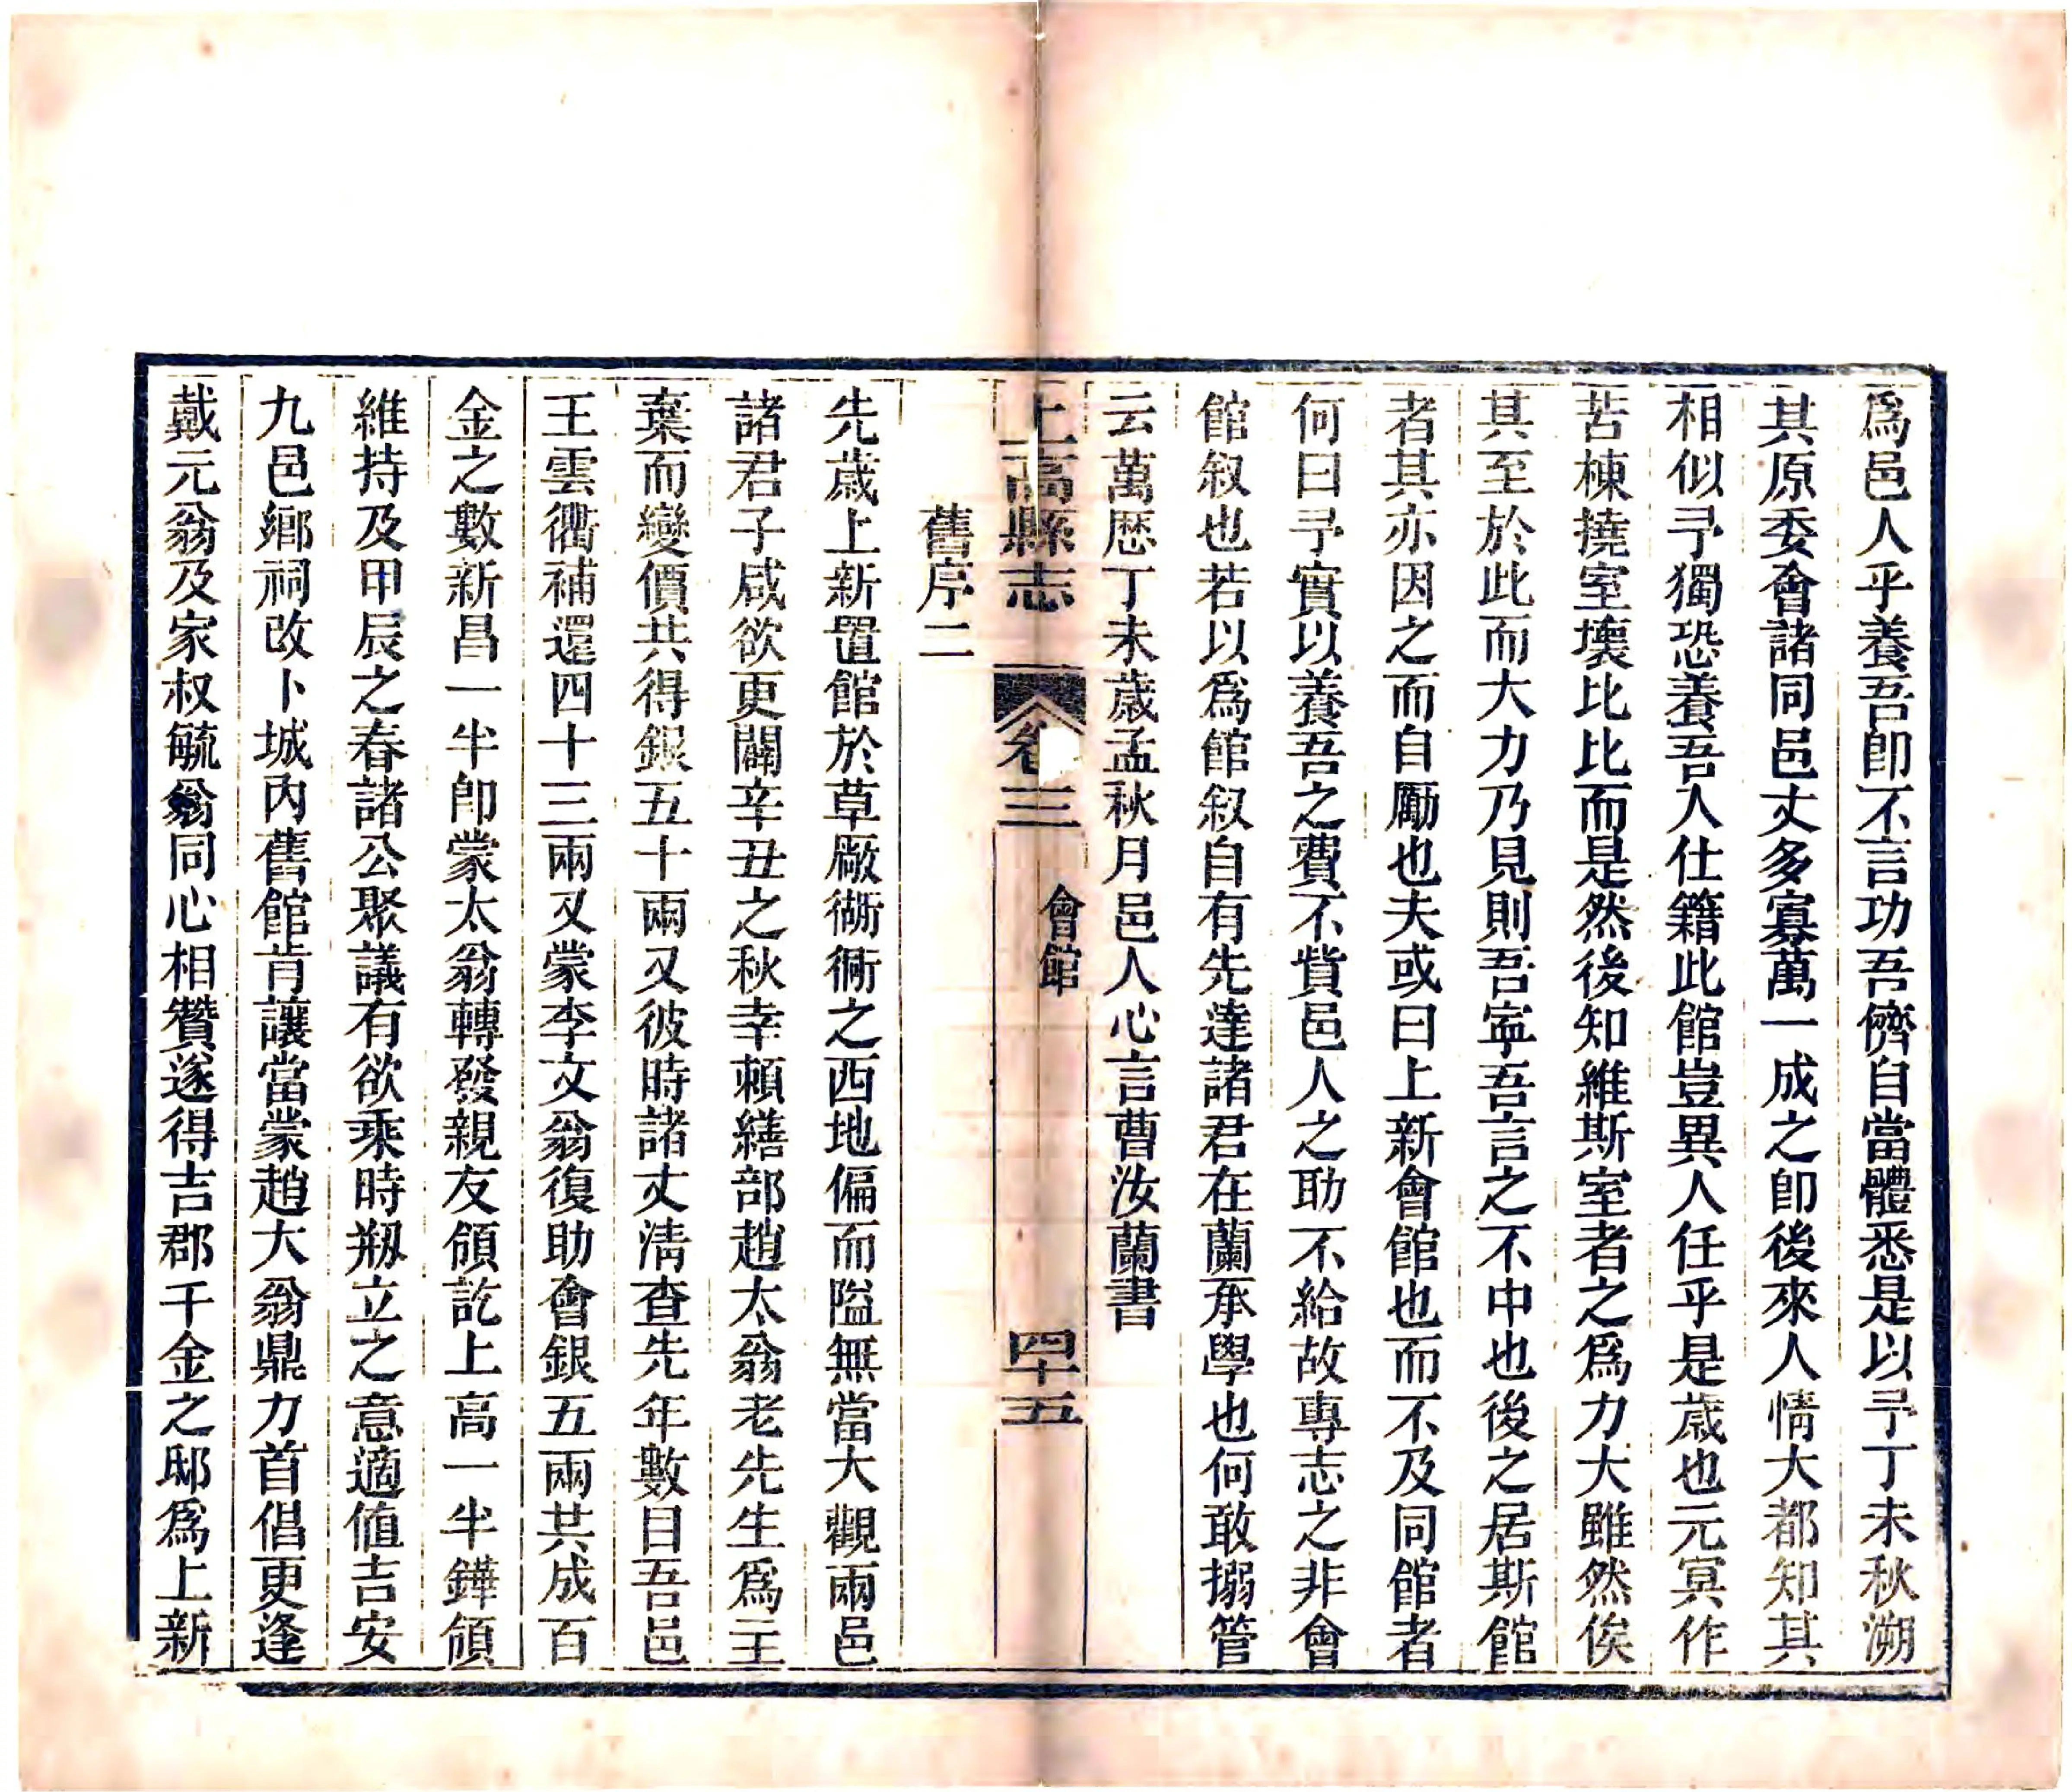 爲邑人乎養吾卽不言功吾儕自當體悉是以予丁未秋溯
其原委會諸同邑丈多寡萬一成之卽後來人情大都知其
相似予獨恐養吾人仕籍此館豈異人任乎是歲也元冥作
苦棟撓室壞比比而是然後知維斯室者之爲力大雖然俟
其至於此而大力乃見則吾寧吾言之不中也後之居斯館
者其亦因之而自勵也夫或曰上新會館也而不及同館者
何曰予實以養吾之費不貲邑人之助不給故專志之非會
館叙也若以爲館叙自有先達諸君在蘭承學也何敢搦管
云萬歷丁未歲孟秋月邑人心言曹汝蘭書
上高縣志 卷三 會館 四十五
舊序二
先歲上新置館於草廠衚衕之西地偏而隘無當大觀兩邑
諸君子咸欲更闢辛丑之秋幸賴繕部趙太翁老先生爲主
棄而變價共得銀五十兩又彼時諸丈淸查先年數目吾邑
王雲衢補還四十三兩又蒙李文翁復助會銀五兩共成百
金之數新昌一半卽蒙太翁轉發親友領訖上高一半鏵領
維持及甲辰之春諸公聚議有欲乘時剏立之意適值吉安
九邑鄉祠改卜城內舊館肯讓當蒙趙大翁鼎力首倡更逢
戴元翁及家叔毓翁同心相贊遂得吉郡千金之邸爲上新